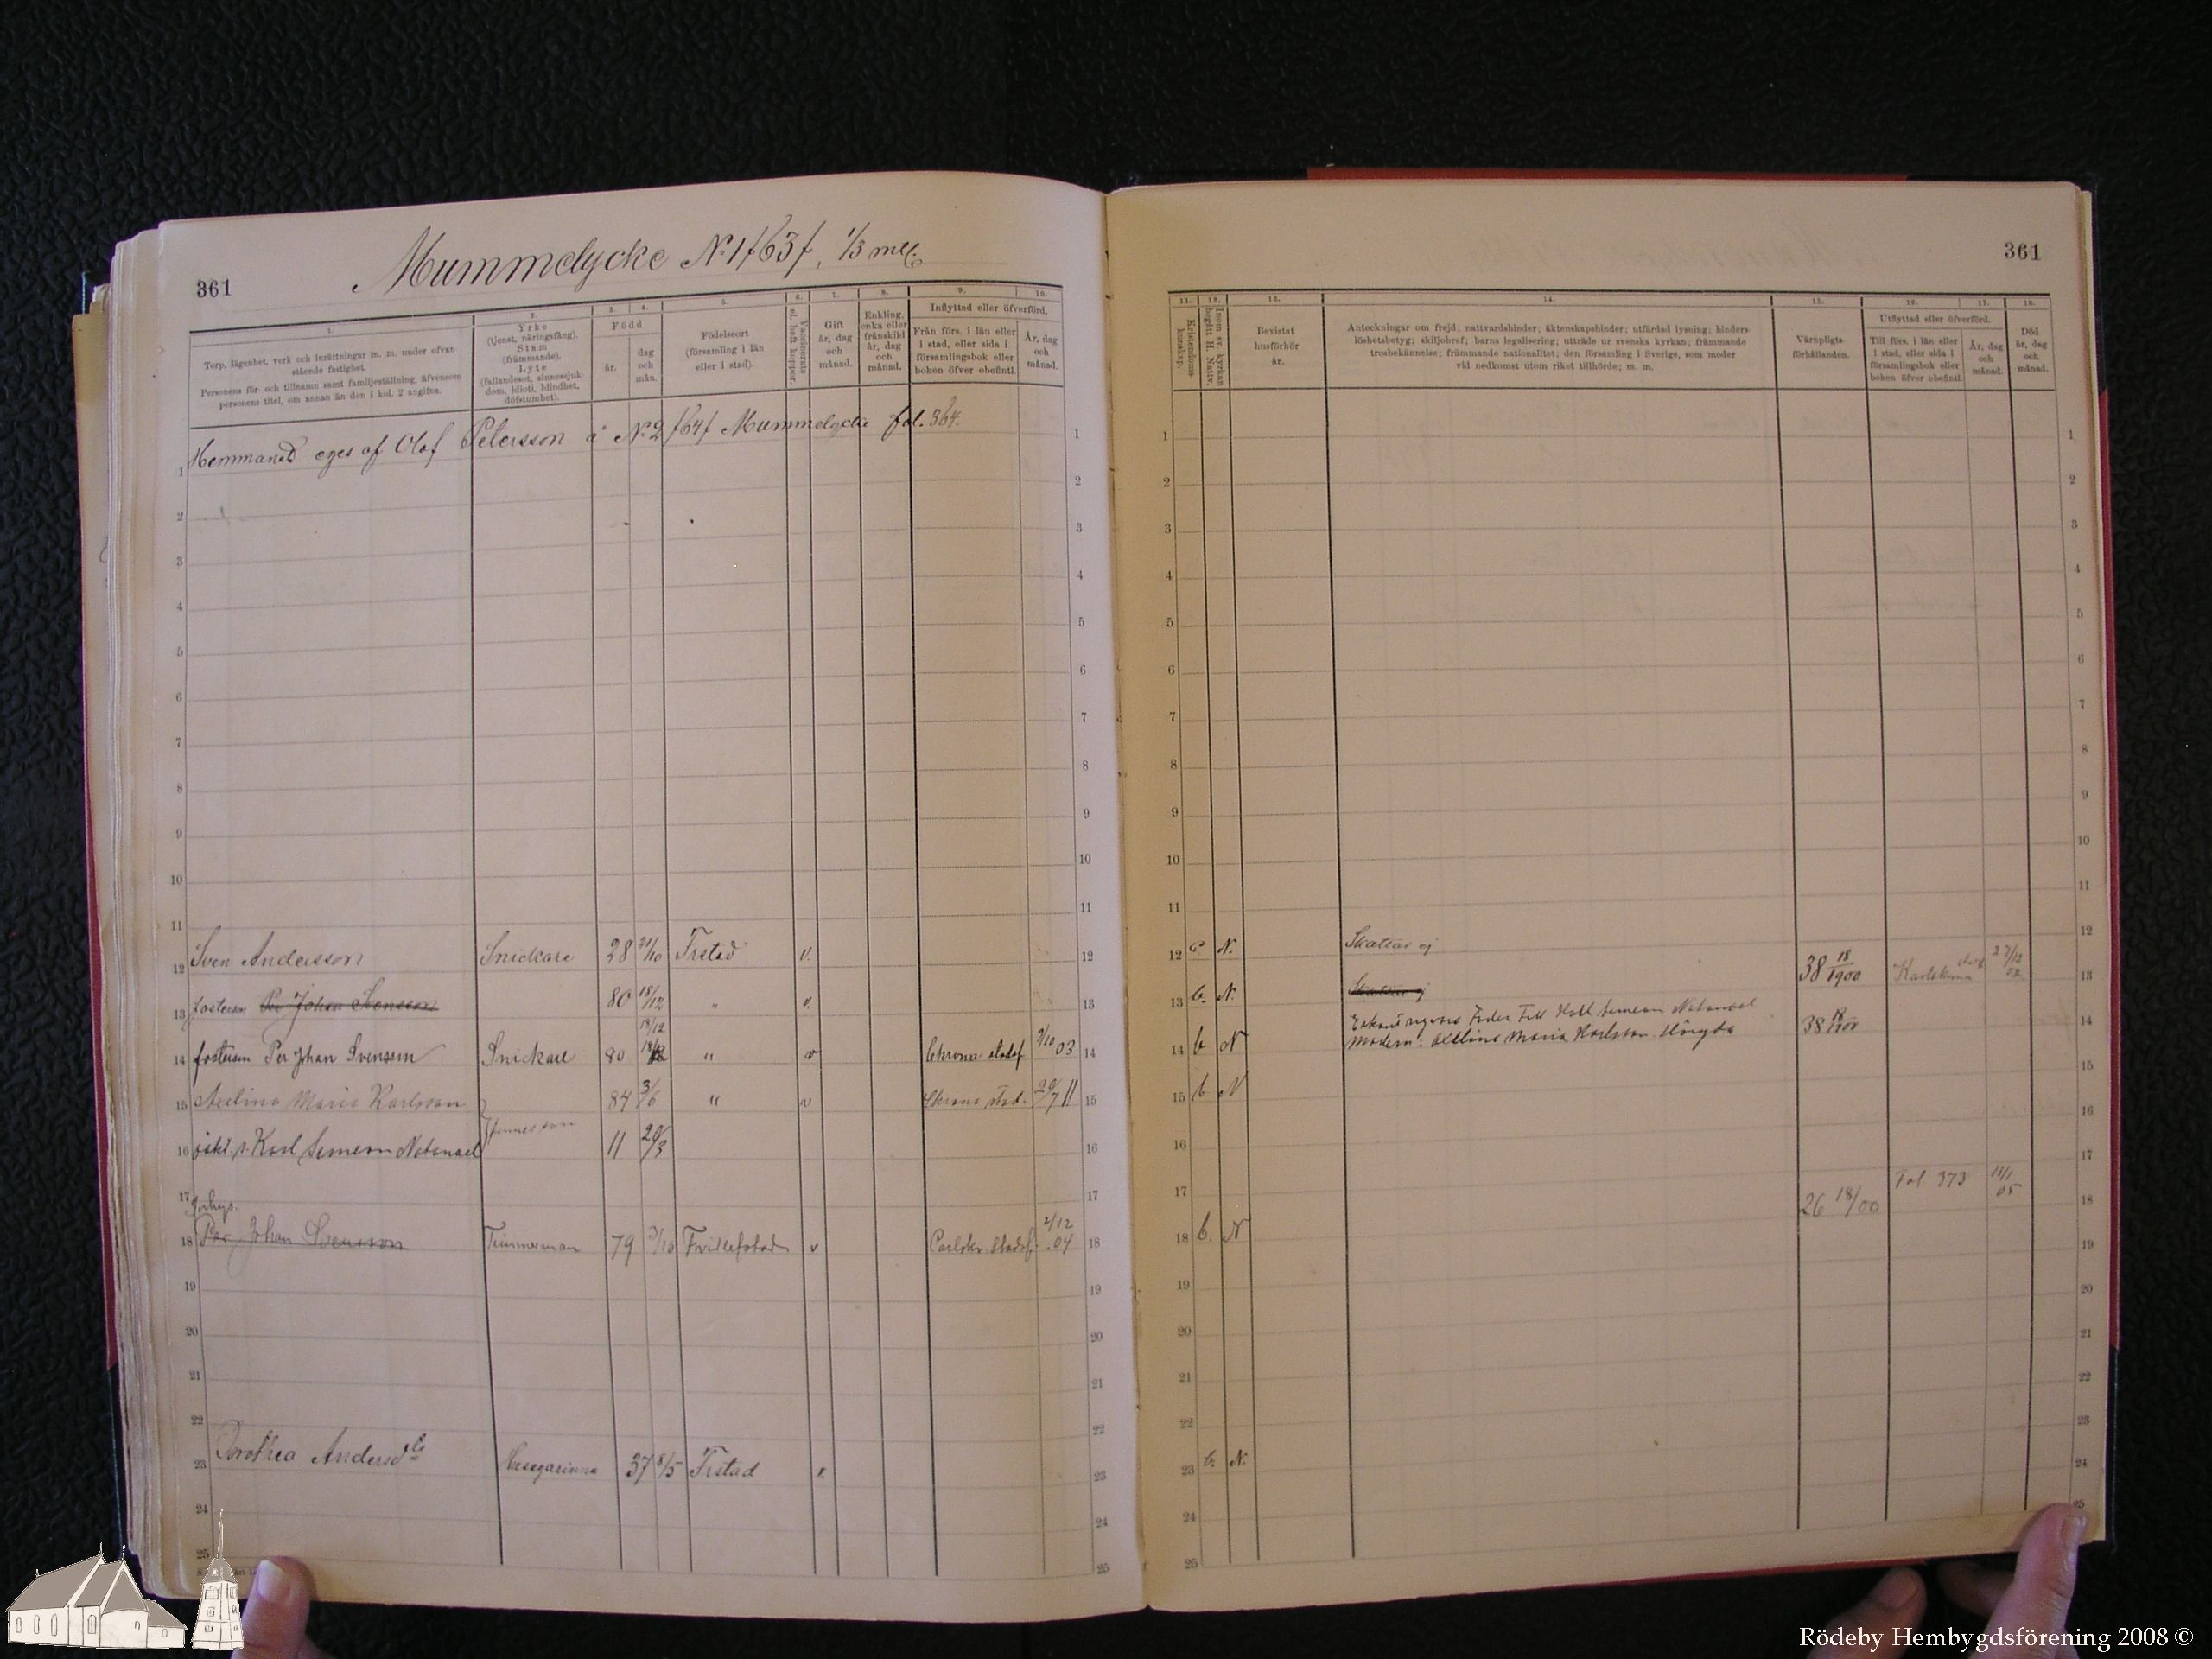 361
Mummelycke No 1 f63f, 1/3 mtl.
1. 2. 3. 4. 5. 6. 7. 8. 9. 10.
Torp, lägenhet, verk och inrättningar m. m. under ofvanstående fastighet.
Personens för- och tillnamn samt familjeställning, äfvensom personens titel, om annan än den i kol. 2 angifna.
Yrke
(tjenst, näringsfång).
Stam
(främmande).
Lyte
(fallandesot, sinnessjukdom, idioti, blindhet, döfstumhet).
Född
år.
dag och mån.
Födelseort
(församling i län
eller i stad).
Vaccinerats el. haft koppor.
Gift
år, dag
och
månad.
Enkling,
enka eller
frånskild
år, dag
och
månad.
Inflyttad eller öfverförd.
Från förs. i län eller
i stad, eller sida i
församlingsbok eller
boken öfver obefintl.
År, dag
och
månad.
1 Hemmanet eges af Olof Petersson å No 2 f64f Mummelycke fol. 364. 1
2 2
3 3
4 4
5 5
6 6
7 7
8 8
9 9
10 10
11 11
12 Sven Andersson Snickare 28 21/10 Frstad v. 12
13 fosterson Per Johan Svensson 80 18/12 " v. 13
18/12
14 fosterson Per Johan Svensson Snickare 80 " v Chrona stadsf 7/10 03 14
15 Axelina Maria Karlsson 84 3/6 " v Chrona stad. 20/7 11 15
16 Karl Simeon Natanael 11 20/3 16
17 Inhys. 17
18 Per Johan Svensson Timmerman 79 Fridlefstad v Carlskr. Stadsf. 2/12 04 18
19 19
20 20
21 21
22 22
23 Dorothea Andersdtr 37 8/5 Frstad v. 23
24 24
25 25
361
11. 12. 13. 14. 15. 16. 17. 18.
Kristendomskunskap.
Inom sv. kyrkan begått H. Nattv.
Bevistat
husförhör
år.
Anteckningar om frejd; nattvardshinder; äktenskapshinder; utfärdad lysning; hinderslöshetsbetyg; skiljobref; barns legalisering; utträde ur svenska kyrkan; främmande trosbekännelse; främmande nationalitet; den församling i Sverige, som moder vid nedkomst utom riket tillhörde; m. m.
Värnpligtsförhållanden.
Utflyttad eller öfverförd.
Till förs. i län eller
i stad, eller sida i
församlingsbok eller
boken öfver obefintl.
År, dag
och
månad.
Död
år, dag
och
månad.
1 1
2 2
3 3
4 4
5 5
6 6
7 7
8 8
9 9
10 10
11 11
12 N. Skattar ej 12
13 b. N. Skattar ej 38 18/1900 Karlskrona 13
14 b N 38 18/1900 14
Modern: Axelina Maria Karlsson
15 b N 15
16 16
17 17
18 b. N 26 18/00 Fol 373 05 18
19 19
20 20
21 21
22 22
23 b. N. 23
24 24
25 25
Rödeby Hembygdsförening 2008 ©